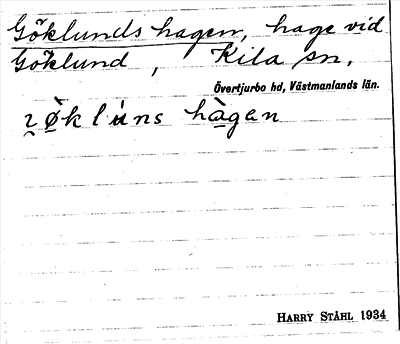 Göklunds hagen, hage vid
Göklund, Kila sn.
Övertjurbo hd, Västmanlands län.
HARRY STÅHL 1934